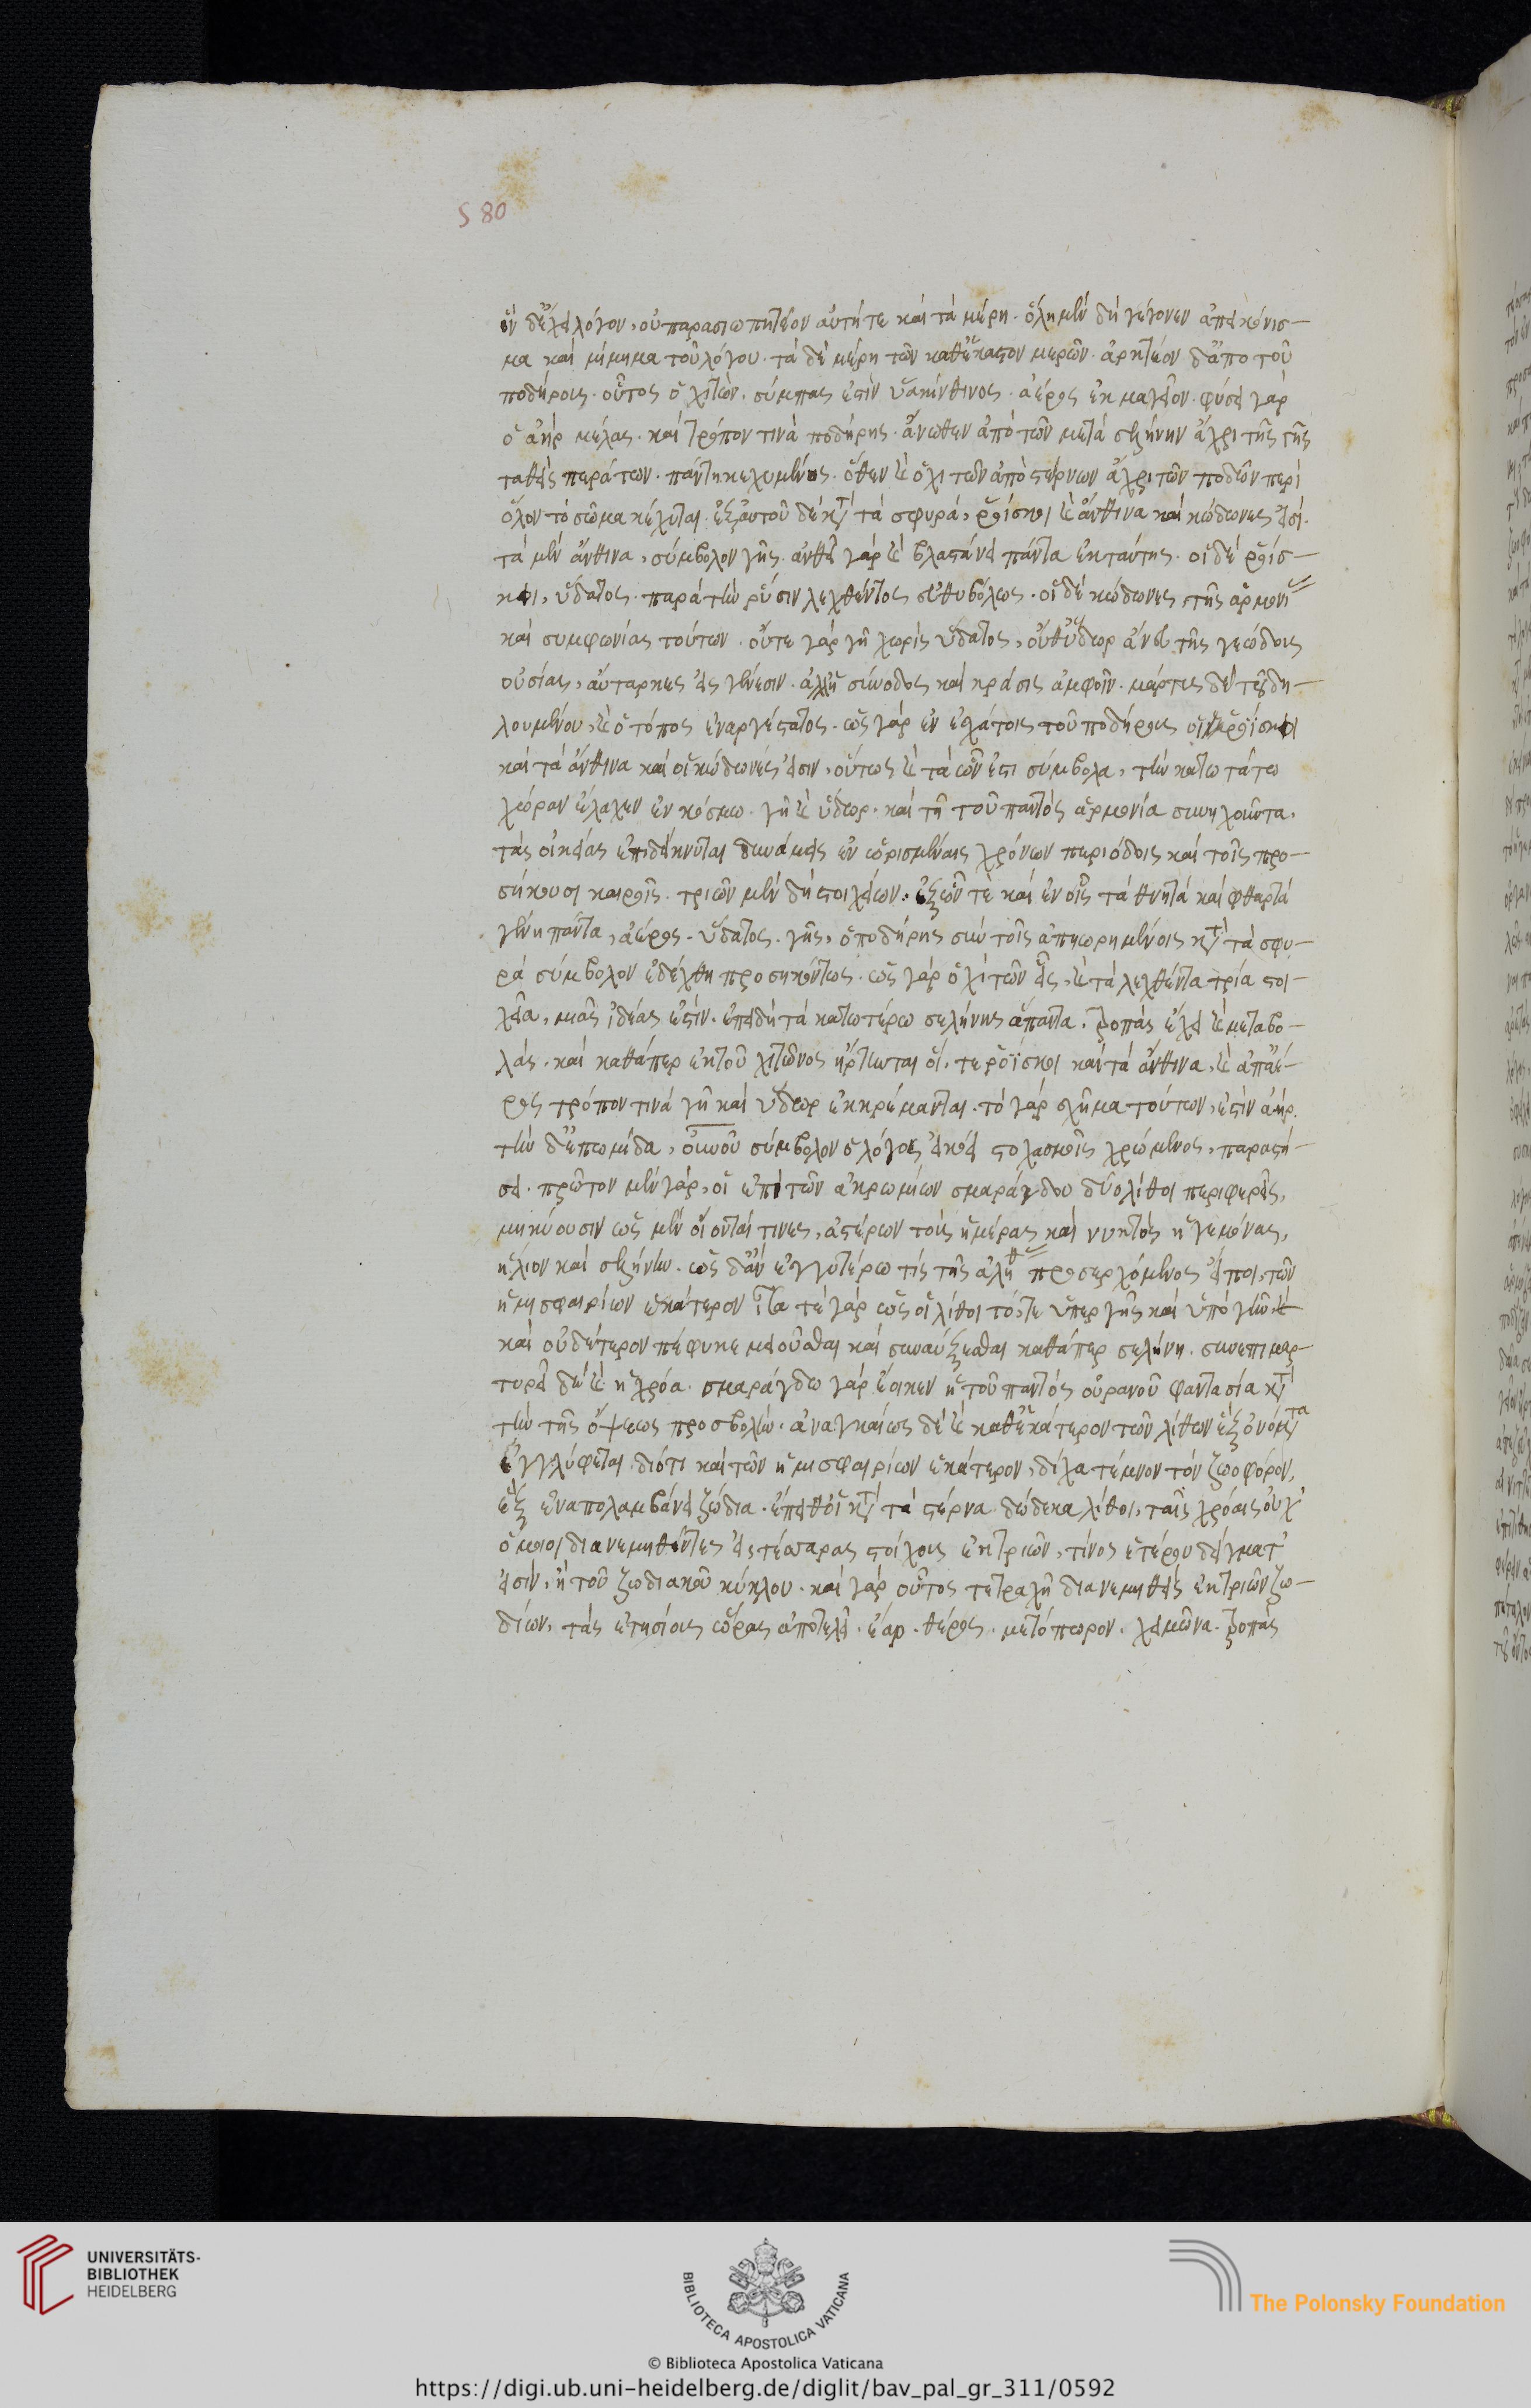 S 80
ὃν δ' ἔχει λόγον, οὐ παρασιωπητέον αὐτή τε καὶ τὰ μέρη. ὅλη μὲν δὴ γέγονεν ἀπεικόνισ-
μα καὶ μίμημα τοῦ λόγου. τὰ δὲ μέρη τῶν καθ' ἕκαστον μερῶν. ἀρκτέον δ' ἀπὸ τοῦ
ποδήρους. οὗτος ὁ χιτὼν, σύμπας ἐστὶν ὑακίνθινος. ἀέρος ἐκμαγεῖον. φύσει γὰρ
ὁ ἀὴρ μέλας. καὶ τρόπον τινὰ ποδήρης. ἄνωθεν ἀπὸ τῶν μετὰ σελήνην ἄχρι τῆς γῆς
ταθεὶς περάτων. πάντη κεχυμένος. ὅθεν καὶ ὁ χιτὼν ἀπὸ στέρνων ἄχρι τῶν ποδῶν περὶ
ὅλον τὸ σῶμα κέχυται. ἐξ αὐτοῦ δὲ κατὰ τὰ σφυρά, ῥοΐσκοι καὶ ἄνθινα καὶ κώδωνες εἰσί.
τὰ μὲν ἄνθινα, σύμβολον γῆς. ἀνθεῖ γὰρ καὶ βλαστάνει πάντα ἐκ ταύτης. οἱ δὲ ῥοΐσ-
κοι, ὕδατος. παρὰ τὴν ῥύσιν λεχθέντες εὐθυβόλως. οἱ δὲ κώδωνες, τῆς ἁρμονίας
καὶ συμφωνίας τούτων. οὔτε γὰρ γῆ χωρὶς ὕδατος, οὔθ' ὕδωρ ἄνευ τῆς γεώδους
οὐσίας, αὔταρκες εἰς γένεσιν. ἀλλ' ἡ σύνοδος καὶ κρᾶσις ἀμφοῖν. μάρτυς δὲ τοῦ δη-
λουμένου, καὶ ὁ τόπος ἐναργέστατος. ὡς γὰρ ἐν ἐσχάτοις τοῦ ποδήρους οἱ ῥοΐσκοι
καὶ τὰ ἄνθινα καὶ οἱ κώδωνές εἰσιν, οὕτως καὶ τὰ ὧν ἐστι σύμβολα, τὴν κατωτάτω
χώραν ἔλαχεν ἐν κόσμω. γῆ καὶ ὕδωρ. καὶ τῆ τοῦ παντὸς ἁρμονία συνηχοῦντα.
τὰς οἰκείας ἐπιδείκνυται δυνάμεις ἐν ὡρισμέναις χρόνων περιόδοις καὶ τοῖς προ-
σήκουσι καιροῖς. τριῶν μὲν δὴ στοιχείων. ἐξ ὧν τὲ καὶ ἐν οἷς τὰ θνητὰ καὶ φθαρτὰ
γένη πάντα, ἀέρος. ὕδατος. γῆς, ὁ ποδήρης σὺν τοῖς ἀπηωρημένοις κατὰ τὰ σφυ-
ρὰ σύμβολον ἐδείχθη προσηκόντως. ὡς γὰρ ὁ χιτὼν εἷς, καὶ τὰ λεχθέντα τρία στοι-
χεῖα, μιᾶς ἰδέας ἐστίν. ἐπειδὴ τὰ κατωτέρω σελήνης ἅπαντα. τροπὰς ἔχει καὶ μεταβο-
λάς. καὶ καθάπερ ἐκ τοῦ χιτῶνος ἤρτηνται οἵ, τε ῥοΐσκοι καὶ τὰ ἄνθινα, καὶ ἀπ' ἀέ-
ρος τρόπον τινὰ γῆ καὶ ὕδωρ ἐκκρέμανται. τὸ γὰρ ὄχημα τούτων, ἐστὶν ἀήρ.
τὴν δ' ἐπωμίδα, οὐνοῦ σύμβολον ὁ λόγος εἰκόσι στοχασμοῖς χρώμενος, παραστή-
σει. πρῶτον μὲν γὰρ, οἱ ἐπὶ τῶν ἀκρωμίων σμαράγδου δύο λίθοι περιφερεῖς,
μηνύουσιν ὡς μὲν οἴονταί τινες, ἀστέρων τοὺς ἡμέρας καὶ νυκτὸς ἡγεμόνας,
ἥλιον καὶ σελήνην. ὡς δ' ἂν ἐγγυτέρω τὶς τῆς ἀληθείας προσερχόμενος εἴποι, τῶν
ἡμισφαιρίων ἑκάτερον ἴσα τὲ γὰρ ὡς οἱ λίθοι τό, τε ὑπὲρ γῆς καὶ ὑπὸ γῆν
καὶ οὐδέτερον πέφυκε μειοῦσθαι καὶ συναύξεσθαι καθάπερ σελήνη. συνεπιμαρ-
τυρεῖ δὲ καὶ ἡ χρόα. σμαράγδω γὰρ ἔοικεν ἡ τοῦ παντὸς οὐρανοῦ φαντασία κατὰ
τὴν τῆς ὄψεως προσβολήν. ἀναγκαίως δὲ καὶ καθ' ἑκάτερον τῶν λίθων ἓξ ὀνόματα
ἐγγλύφεται. διότι καὶ τῶν ἡμισφαιρίων ἑκάτερον, δίχα τέμνον τὸν ζωοφόρον,
ἓξ ἐναπολαμβάνει ζώδια. ἔπειθ' οἱ κατὰ τὰ στέρνα δώδεκα λίθοι, ταῖς χρόαις οὐχ'
ὅμοιοι διανεμηθέντες εἰς τέσσαρας στοίχους ἐκ τριῶν, τίνος ἑτέρου δείγματ'
εἰσίν, ἢ τοῦ ζωδιακοῦ κύκλου. καὶ γὰρ οὗτος τετραχῆ διανεμηθεὶς ἐκ τριῶν ζω-
δίων, τὰς ἐτησίους ὥρας ἀποτελεῖ. ἔαρ. θέρος. μετόπωρον. χειμῶνα. τροπὰς
UNIVERSITÄTS-
BIBLIOTHEK
HEIDELBERG
BIBLIOTECA APOSTOLICA VATICANA
The Polonsky Foundation
© Biblioteca Apostolica Vaticana
https://digi.ub.uni-heidelberg.de/diglit/bav_pal_gr_311/0592